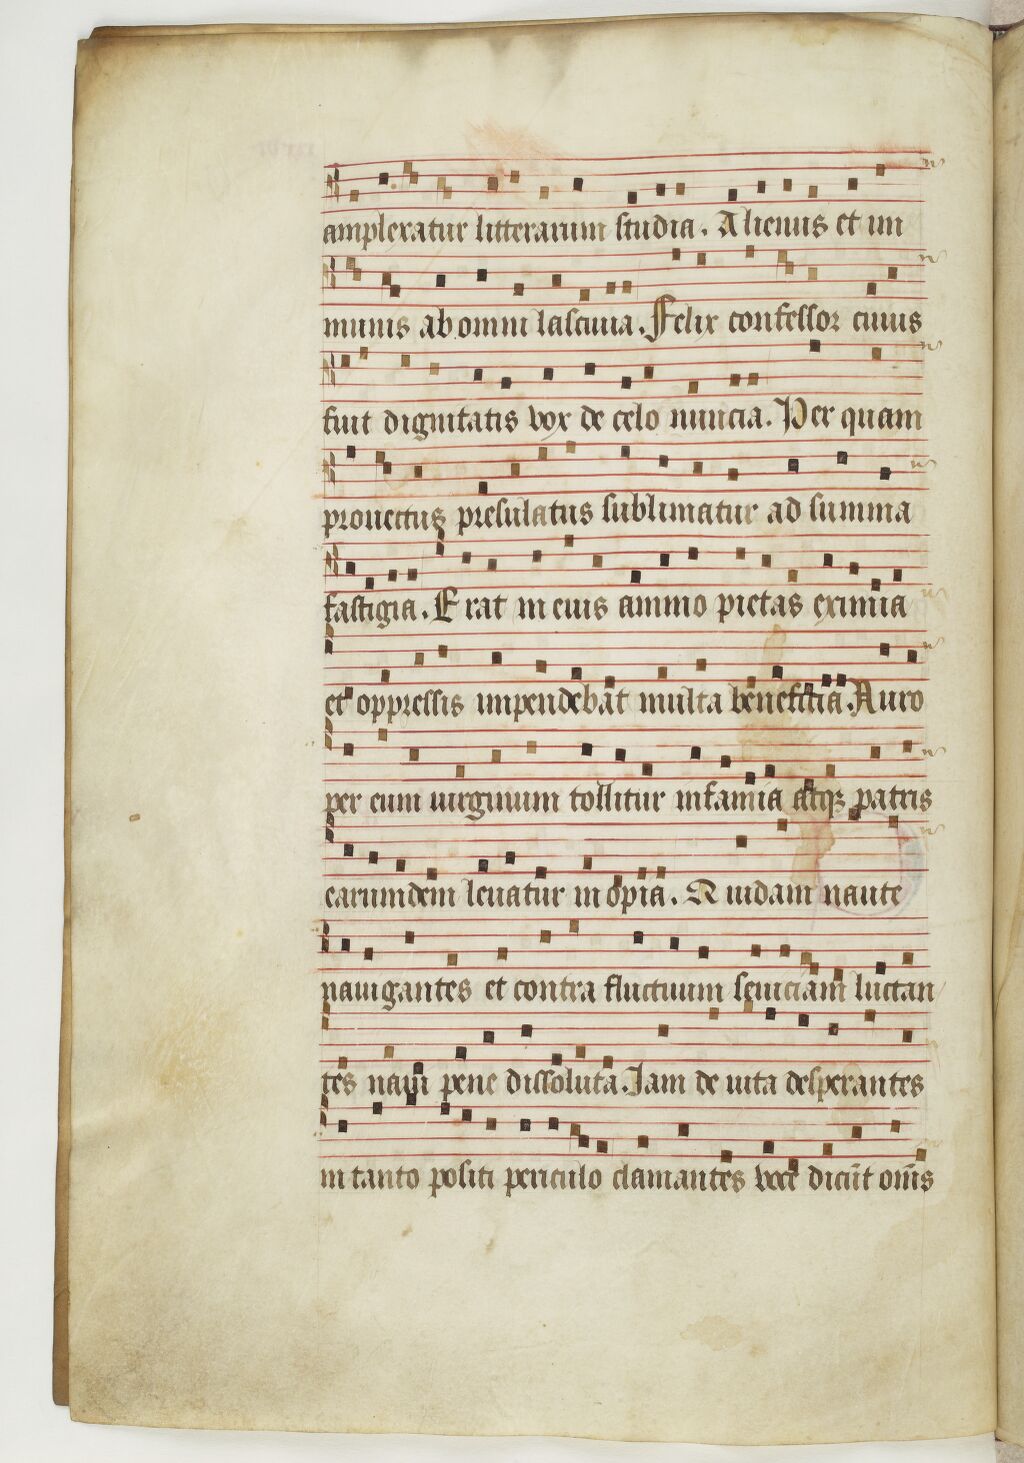 amplexatur litterarum studia. Alienus et im
munis ab omni lasciuia. Felix confessor cuius
fuit dignitatis vox de celo nuncia. Per quam
prouectus presulatus sublimatur ad summa
fastigia. Erat in eius animo pietas eximia
et oppressis impendebat multa beneficia. Auro
per eum uirginum tollitur infamia atq; patris
earumdem leuatur inopia. Quidam naute
nauigantes et contra fluctuum seuiciam luctan
tes naui pene dissoluta. Jam de uita desperantes
in tanto positi periculo clamantes voce dicu̅t om̅s